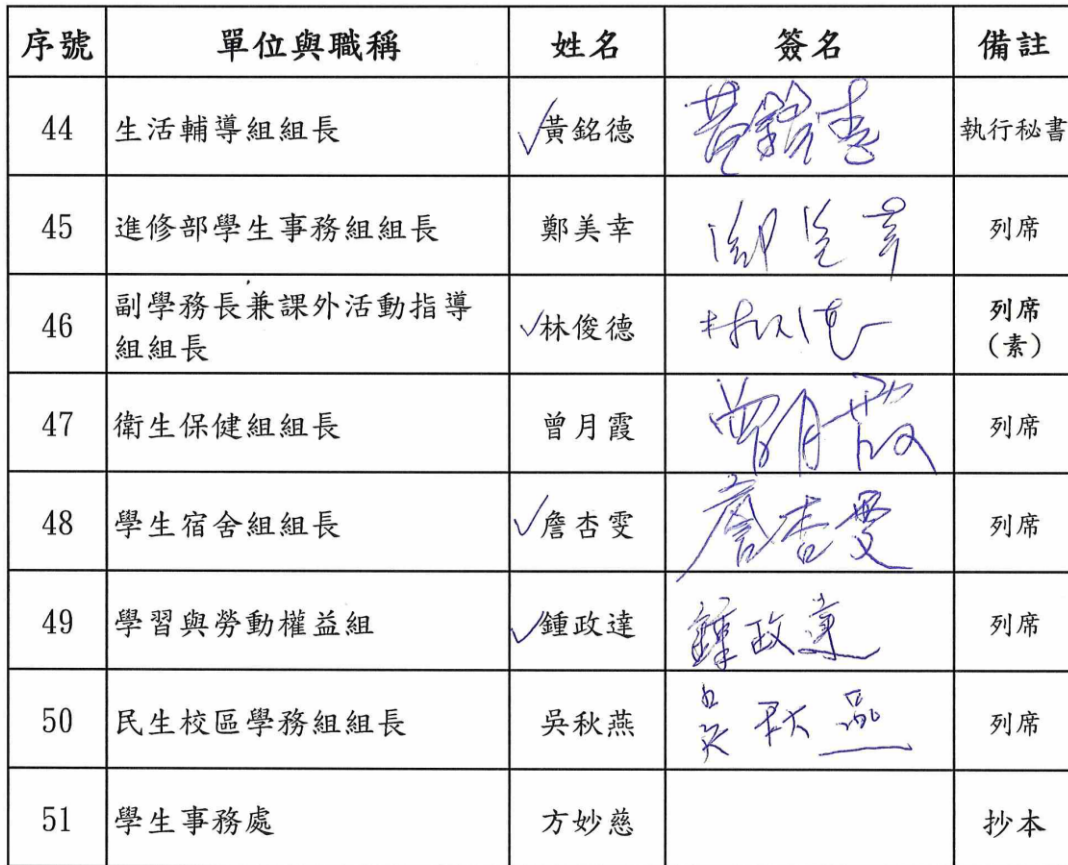 序號 單位與職稱 姓名 簽名 備註
44 生活輔導組組長 ✓黃銘德 黃銘德 執行秘書
45 進修部學生事務組組長 鄭美幸 鄭美幸 列席
46 副學務長兼課外活動指導
組組長 ✓林俊德 林俊德 列席
(素)
47 衛生保健組組長 曾月霞 曾月霞 列席
48 學生宿舍組組長 ✓詹杏雯 詹杏雯 列席
49 學習與勞動權益組 ✓鍾政達 鍾政達 列席
50 民生校區學務組組長 吳秋燕 吳秋燕 列席
51 學生事務處 方妙慈 抄本